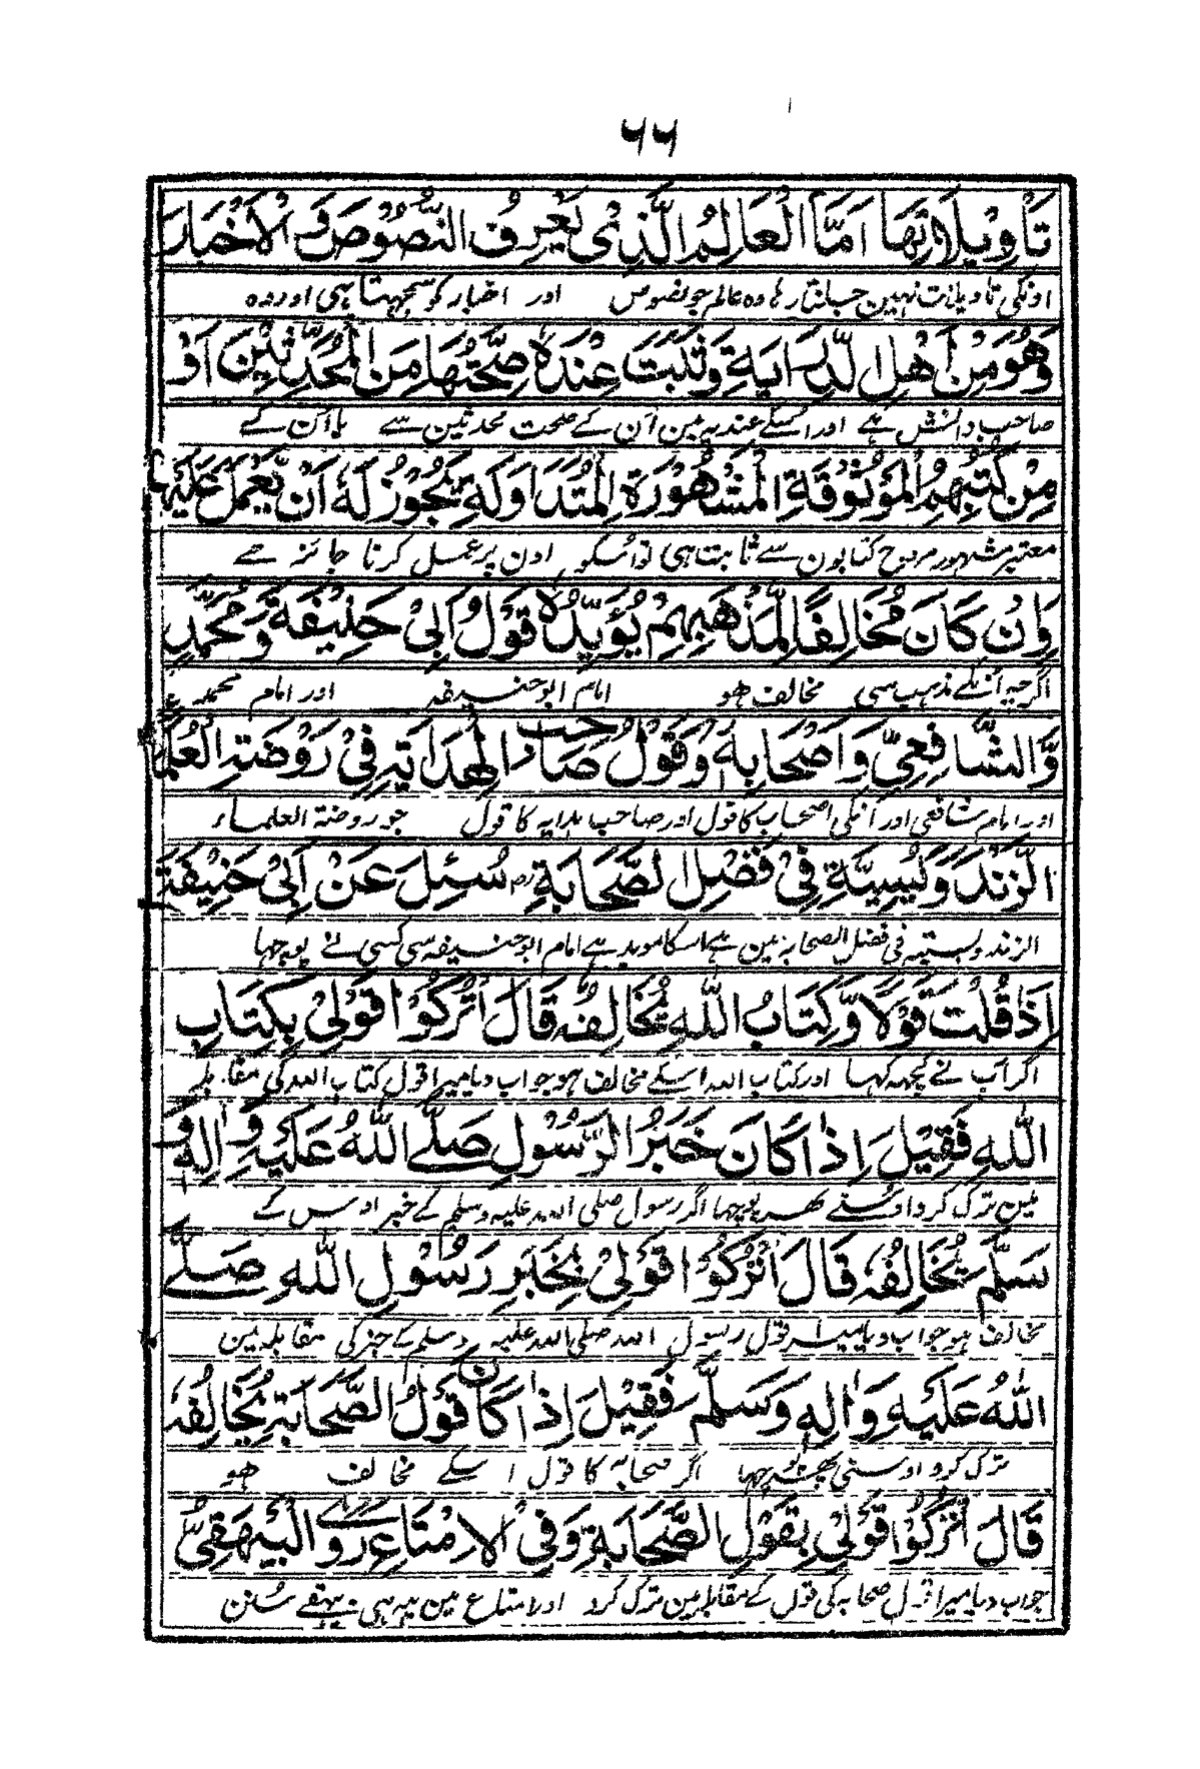 ۶۶
تَأْوِيْلَاتِهَا اَمَّا الْعَالِمُ الَّذِىْ يَعْرِفُ النُّصُوْصَ وَالْاَخْبَارَ
اونکی تاویلات نہین جانتا رہا وہ عالم جو نصوص اور اخبار کو سمجہتا ہی اور وہ
وَهُوَ مِنْ اَهْلِ الدِّرَايَةِ وَثَبَتَ عِنْدَهٗ صِحَّتُهَا مِنَ الْمُحَدِّثِيْنَ اَوْ
صاحب دانش ہے اور اسکے عندیہ مین اُن کے صحت محدثین سے یا اُن کے
مِنْ كُتُبِهِمُ الْمَوْثُوْقَةِ الْمَشْهُوْرَةِ الْمُتَدَاوَلَةِ يَجُوْزُ لَهٗ اَنْ يَّعْمَلَ عَلَيْهَا
معتبر مشہور مروج کتابون سے ثابت ہی تو اُسکو اون پر عمل کرنا جائز ہے
وَاِنْ كَانَ مُخَالِفًا لِّمَذْهَبِهِمْ يُؤَيِّدُهٗ قَوْلُ اَبِىْ حَنِيْفَةَ وَمُحَمَّدٍ
اگرچہ اُنکے مذہب سی مخالف ہو امام ابوحنیفہ اور امام محمد
وَّالشَّافِعِىِّ وَاَصْحَابِهٖ وَقَوْلُ صَاحِبِ الْهِدَايَةِ فِىْ رَوْضَةِ الْعُلَمَاءِ
اور امام شافعی اور اُنکی اصحاب کا قول اور صاحب ہدایہ کا قول جو روضۃ العلماء
الزَّنْدَوِيْسِيَّةِ فِىْ فَضْلِ الصَّحَابَةِ رض سُئِلَ عَنْ اَبِىْ حَنِيْفَةَ
الزندویستیہ فی فضل الصحابہ مین ہے اسکا موید ہے امام ابوحنیفہ سی کسی نے پوچہا
اِذَا قُلْتَ قَوْلًا وَّكِتَابُ اللّٰهِ يُخَالِفُهٗ قَالَ اُتْرُكُوْا قَوْلِىْ بِكِتَابِ
اگر آپ نے کچہہ کہا اور کتاب اللہ اسکے مخالف ہو جواب دیا میرا قول کتاب اللہ کی مقابلہ
اللّٰهِ فَقِيْلَ اِذَا كَانَ خَبَرُ الرَّسُوْلِ صَلَّے اللّٰهُ عَلَيْهِ وَاٰلِهٖ وَ
مین ترک کرو اوسنے پھر پوچہا اگر رسول صلی اللہ علیہ وسلم کے خبر اوس کے
سَلَّمَ يُخَالِفُهٗ قَالَ اُتْرُكُوْا قَوْلِىْ بِخَبَرِ رَسُوْلِ اللّٰهِ صَلَّے
مخالف ہو جواب دیا میرا قول رسول اللہ صلی اللہ علیہ وسلم کے خبر کی مقابلہ مین
اللّٰهُ عَلَيْهِ وَاٰلِهٖ وَسَلَّمَ فَقِيْلَ اِذَا كَانَ قَوْلُ الصَّحَابَةِ يُخَالِفُهٗ
ترک کرو اوسنی پھر پوچہا اگر صحابہ کا قول اسکے مخالف ہو
قَالَ اُتْرُكُوْا قَوْلِىْ بِقَوْلِ الصَّحَابَةِ وَفِى الْاِمْتَاعِ رَوَى الْبَيْهَقِىُّ
جواب دیا میرا قول صحابہ کی قول کے مقابلہ مین ترک کرو اور امتاع مین یہہ ہی بیہقے سُنن